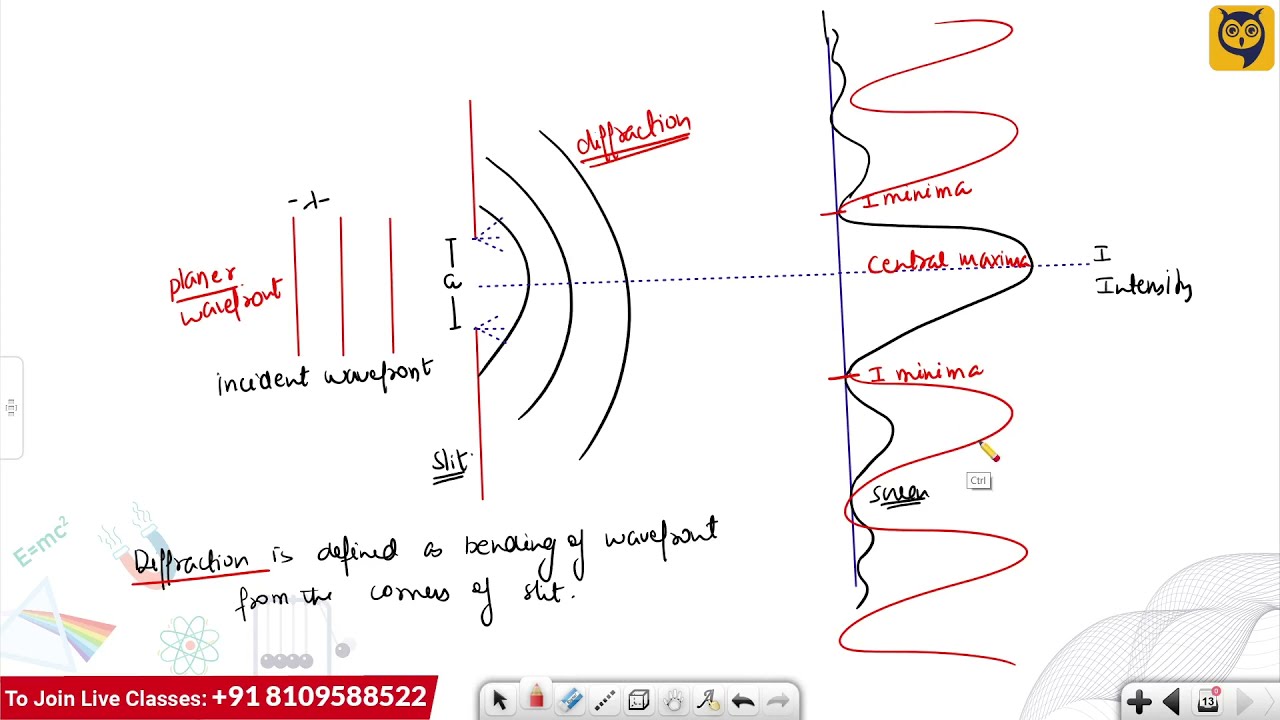 diffraction
-λ-
I minima
planer
wavefront
a
central maxima
I
Intensity
incident wavefront
I minima
slit
screen
Ctrl
Diffraction is defined as bending of wavefront
from the corners of slit.
E=mc²
To Join Live Classes: +91 8109588522
13
0